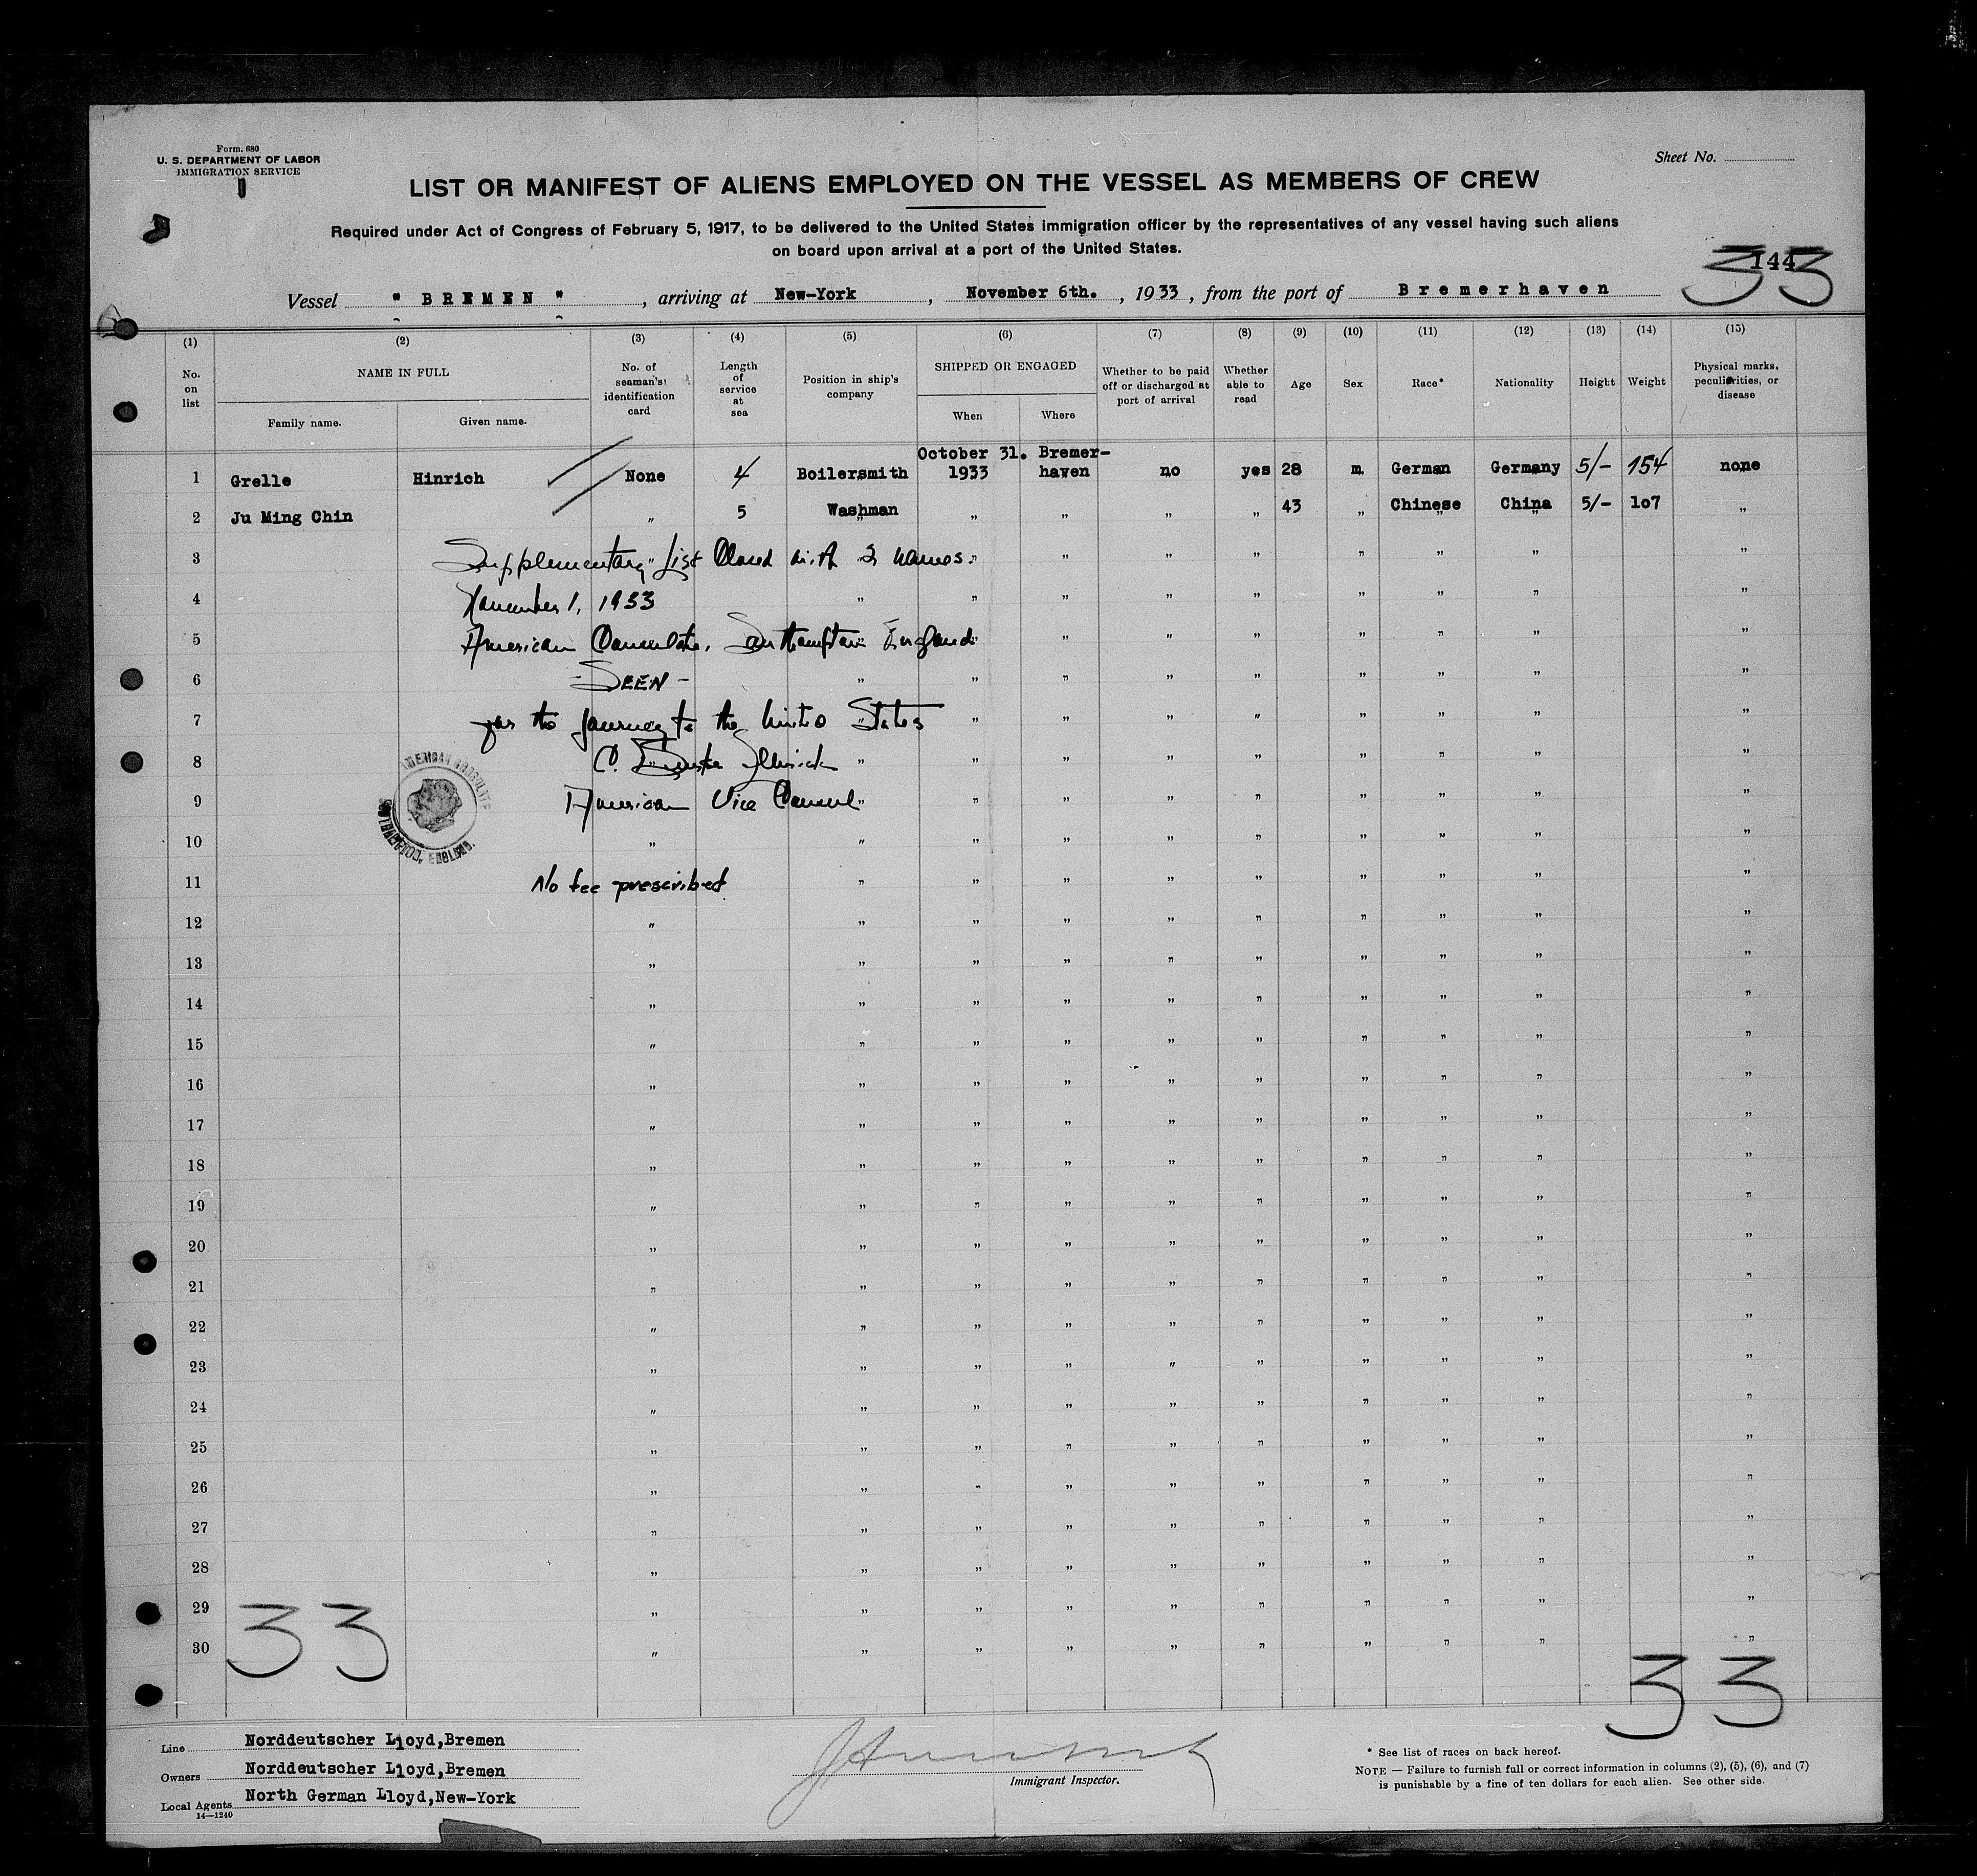 Form. 680
U. S. DEPARTMENT OF LABOR
IMMIGRATION SERVICE
Sheet No.
LIST OR MANIFEST OF ALIENS EMPLOYED ON THE VESSEL AS MEMBERS OF CREW
Required under Act of Congress of February 5, 1917, to be delivered to the United States immigration officer by the representatives of any vessel having such aliens
on board upon arrival at a port of the United States.
144
33
Vessel " BREMEN " , arriving at New-York , November 6th. , 1933 , from the port of Bremerhaven
(1) (2) (3) (4) (5) (6) (7) (8) (9) (10) (11) (12) (13) (14) (15)
No. on list
NAME IN FULL
Family name. Given name.
No. of seaman's identification card
Length of service at sea
Position in ship's company
SHIPPED OR ENGAGED
When Where
Whether to be paid off or discharged at port of arrival
Whether able to read
Age
Sex
Race*
Nationality
Height
Weight
Physical marks, peculiarities, or disease
1 Grelle Hinrich None 4 Boilersmith October 31. 1933 Bremer-haven no yes 28 m German Germany 5/- 154 none
2 Ju Ming Chin " 5 Washman " " " " 43 " Chinese China 5/- 107 "
3 Supplementary List Closed with 2 names. " " " " " " " "
4 November 1, 1933 " " " " " " " " "
5 American Consulate, Southampton England " " " " " " "
6 - SEEN - " " " " " " " " "
7 for the journey to the United States " " " " " " " "
8 C. " " " " " " " " "
9 American Vice Consul " " " " " " " " "
AMERICAN CONSULATE
SOUTHAMPTON, ENGLAND.
10 " " " " " " " " " "
11 No fee prescribed " " " " " " " " "
12 " " " " " " " " " "
13 " " " " " " " " " "
14 " " " " " " " " " "
15 " " " " " " " " " "
16 " " " " " " " " " "
17 " " " " " " " " " "
18 " " " " " " " " " "
19 " " " " " " " " " "
20 " " " " " " " " " "
21 " " " " " " " " " "
22 " " " " " " " " " "
23 " " " " " " " " " "
24 " " " " " " " " " "
25 " " " " " " " " " "
26 " " " " " " " " " "
27 " " " " " " " " " "
28 " " " " " " " " " "
29 " " " " " " " " " "
30 " " " " " " " " " "
33
33
Line Norddeutscher Lloyd,Bremen
Owners Norddeutscher Lloyd,Bremen
Local Agents North German Lloyd,New-York
14—1240
Immigrant Inspector.
* See list of races on back hereof.
NOTE — Failure to furnish full or correct information in columns (2), (5), (6), and (7)
is punishable by a fine of ten dollars for each alien. See other side.